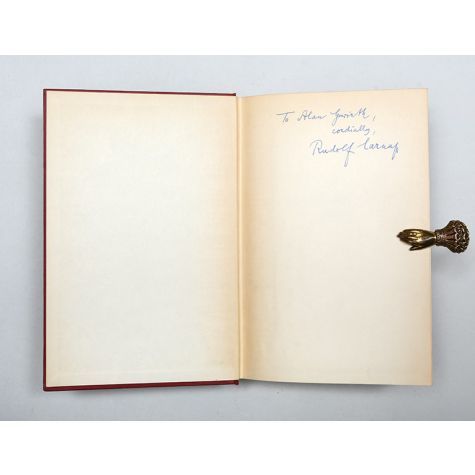 To Alan Gewirth,
cordially,
Rudolf Carnap